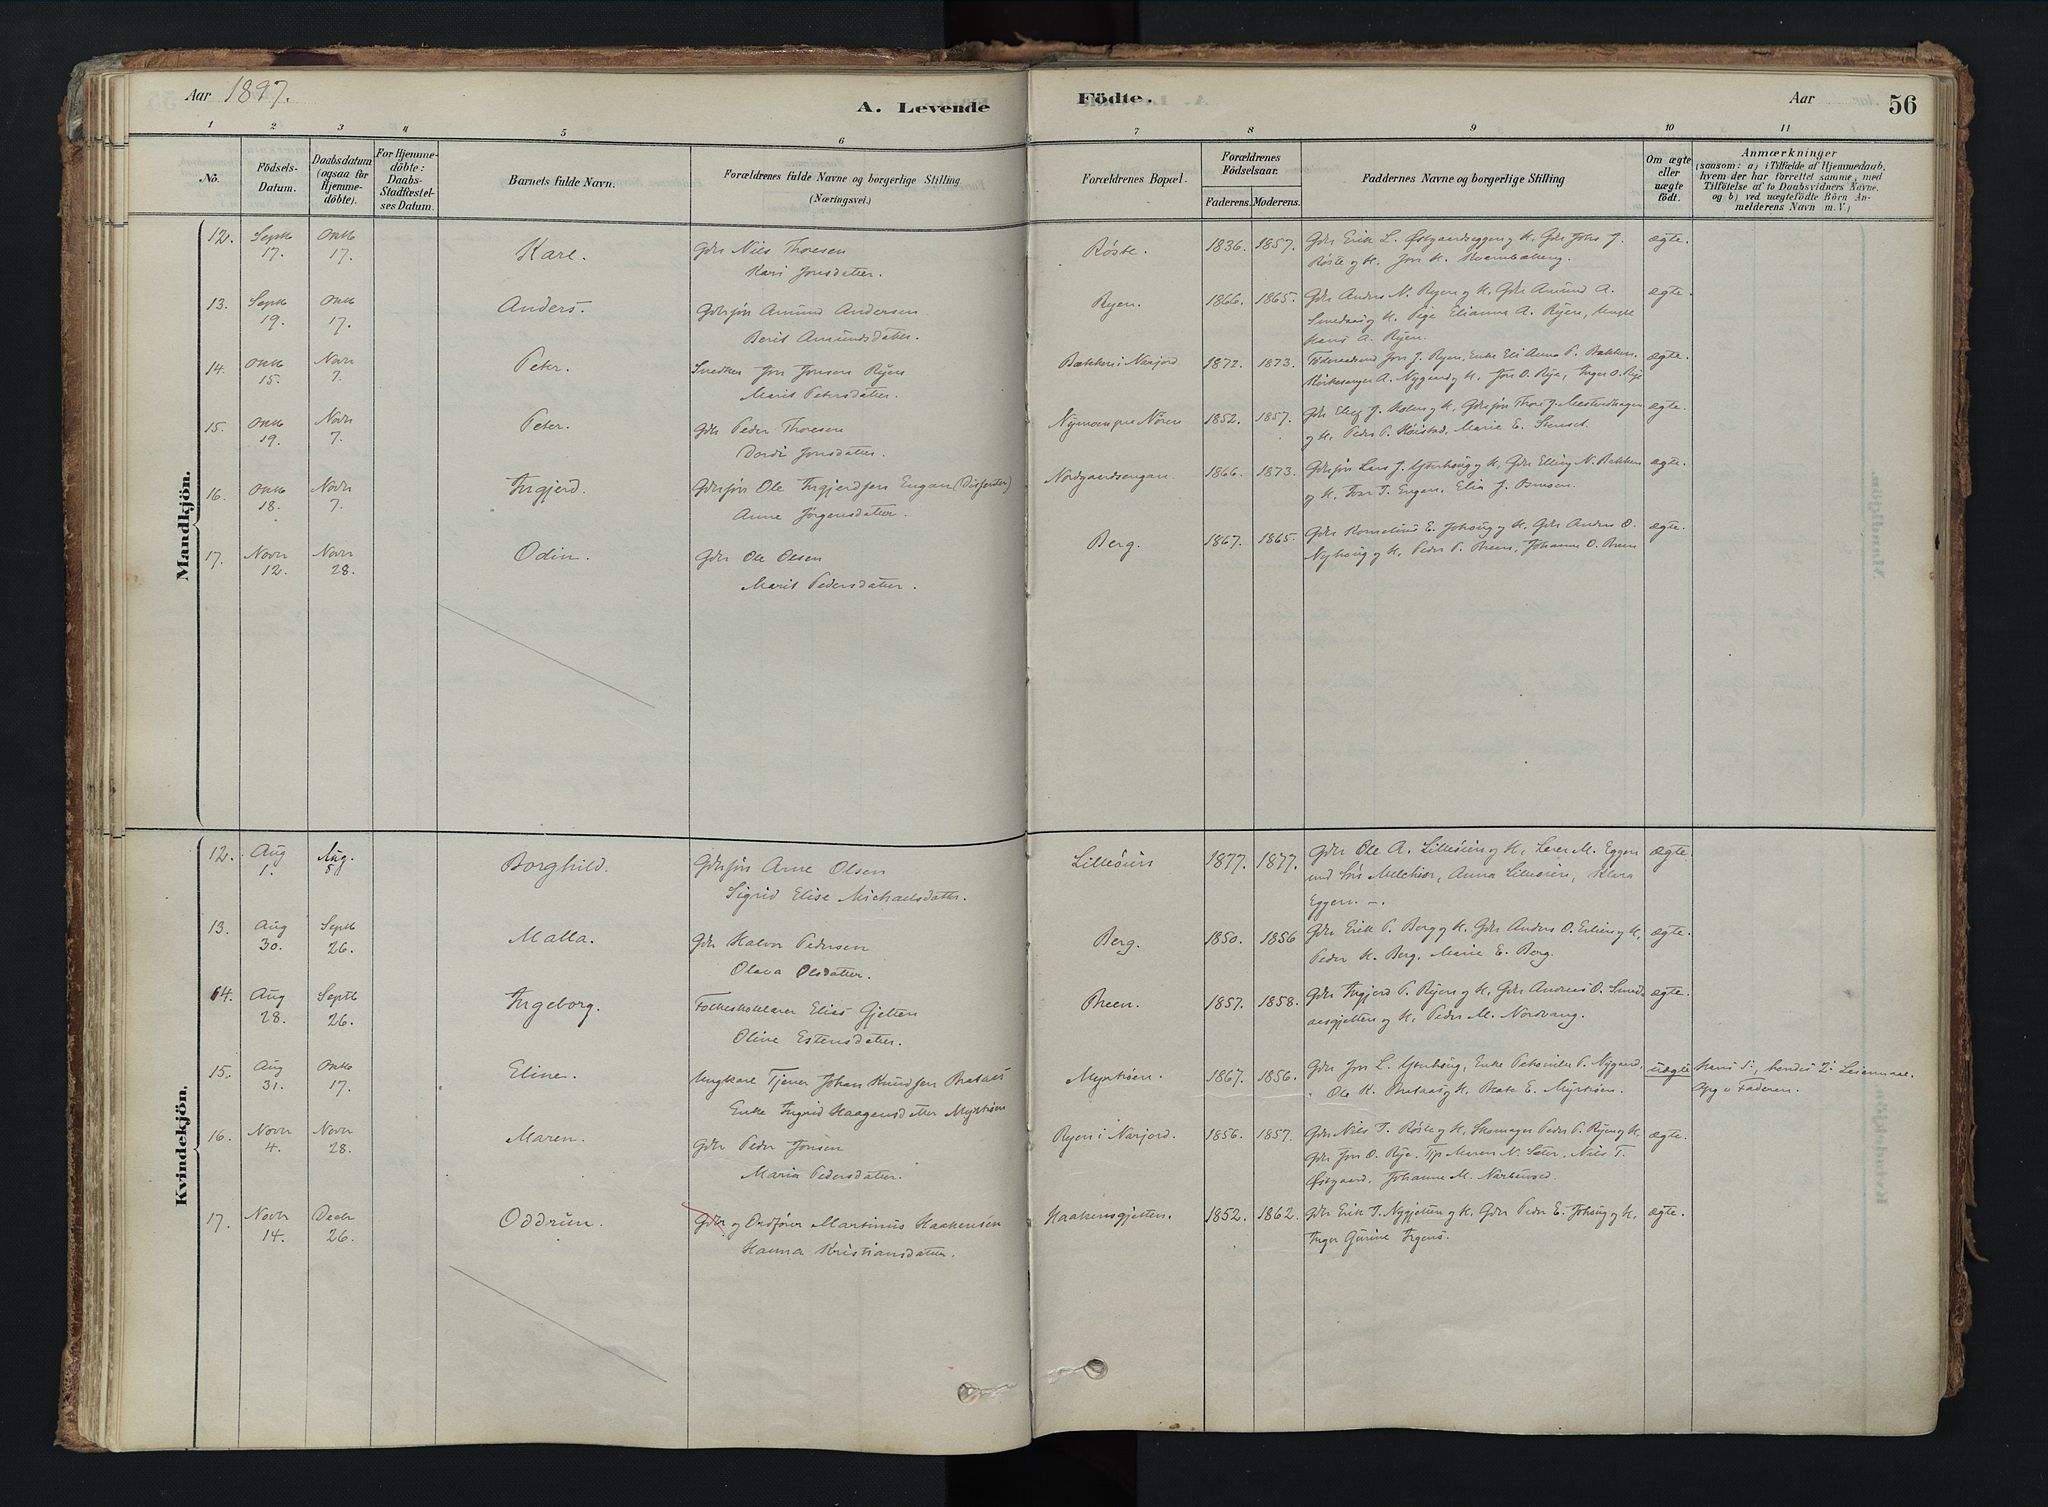 Aar 1897.
A. Levende
Födte.
Aar
56
1 2 3 4 5 6 7 8 9 10 11
No.
Födsels-
Datum.
Daabsdatum
(ogsaa for
Hjemme-
döbte).
For Hjemme-
döbte:
Daabs-
Stadfæstel-
ses Datum.
Barnets fulde Navn.
Forældrenes fulde Navne og borgerlige Stilling
(Næringsvei.)
Forældrenes Bopæl.
Forældrenes
Födselsaar.
Faderens. Moderens.
Faddernes Navne og borgerlige Stilling
Om ægte
eller
uægte
födt.
Anmærkninger
(saasom: a) i Tilfælde af Hjemmedaab,
hvem der har forrettet samme, med
Tilföielse af to Daabsvidners Navne,
og b) ved uægtefödte Börn An-
melderens Navn m. V.)
Mandkjön.
12. Septb 17. Oktb 17. Kare. Gdr Nils Thoresen
Kari Jonsdatter.
Røste. 1836. 1857. Gdr Erik L. Østgaardseggen og K. Gdr Johs J.
Røste og K. Jon K. Kvernbækeng. ægte.
13. Septb 19. Oktb 17. Anders. Gdrsøn Amund Andersen
Berit Amundsdatter.
Ryen. 1866. 1865. Gdr Anders N. Ryen og K. Gdr Amund A.
Smedaas og K. Pige Elianna A. Ryen, Ungk
Hans A. Ryen. ægte.
14. Oktb 15. Novbr 7. Peter. Snedker Jon Jonsen Ryen
Marit Petersdatter.
Bækken i Narjord 1872. 1873. Føderaadsmd Jon J. Ryen, Enke Eli Anna P. Bakken.
Kirkesanger A. Nygaard og K. Jon O. Rye, Inger O. Rye ægte.
15. Oktb 19. Novbr 7. Peter. Gdr Peder Thoresen
Dordi Jonsdatter.
Nymoen pre Nören 1852. 1857. Gdr Elluf J. Holm og K. Gdrsøn Thore J.
og K. Peder P. Køistad, Marie E. Stenset. ægte.
16. Oktb 18. Novbr 7. Ingjerd. Gdrsøn Ole Ingjerdsen Engan (Dissenter)
Anne Jørgensdatter.
Nordgaardsengan. 1866. 1873. Gdrsøn Lars J. Ytterhoug og K. Gdr Elling N. Bakken
og K. Tore T. Engan. ægte.
17. Novbr 12. Novbr 28. Odin. Gdr Ole Olsen
Marit Pedersdatter.
Berg. 1867. 1865. Gdr Kornelius E. Johoug og K. Gdr Anders O.
Nyhoug og K. Peder P. Breen, Johanne O. Breen ægte.
Kvindekjön.
12. Aug 1. Aug. 8 Borghild. Gdrsøn Arne Olsen
Sigrid Elise Michaelsdatter.
Lilleøien 1877. 1877. Gdr Ole A. Lilleøien og K. Lærer M. Eggen
und Søn Melchior, Anna Lilleøien, Klara
Eggen. –. ægte.
13. Aug 30. Septb 26. Malla. Gdr Halvor Pedersen
Olava Olsdatter.
Berg. 1850. 1856 Gdr Erik P. Berg og K. Gdr Anders O. Erlien og K.
Peder H. Berg, Marie E. Berg. ægte.
14. Aug 28. Septb 26. Ingeborg. Folkeskolelærer Elias Gjelten
Oline Estensdatter.
Breen. 1857. 1858. Gdr Ingjerd P. Ryen og K. Gdr Andreas O. Smed-
aasgjelten og K. Peder M. Nordvang. ægte.
15. Aug 31. Oktb 17. Eline. Ungkare Tjener Johan Knudsen Brataas
Enke Ingrid Haagensdatter Myrtrøen
Myrtrøen. 1867. 1856. Gdr Jon L. Ytterhoug, Enke Petronille P. Nygaard,
Ole K. Brataas og K. Beate E. Myrtrøen. uægte Hans 5te, hendes 2det Leiermaal.
Opg. v Faderen.
16. Novbr 4. Novbr 28. Maren. Gdr Peder Jonsen
Maria Pedersdatter.
Ryen i Narjord. 1856. 1857. Gdr Nils T. Røste og K. Skomager Peder P. Ryen og K.
Gdr Jon O. Rye. Tjp Maren N. Sæter, Nils T.
Østgaard, Johanne M. Narbuvoed. ægte.
17. Novbr 14. Decbr 26. Oddrun. Gdr og Ordfører Martinus Haakensen
Hanna Kristiansdatter.
Haakensgjelten. 1852. 1862. Gdr Erik J. Nygjelten og K. Gdr Peder E. Johoug og K.
Inger Gurine Irgens. ægte.